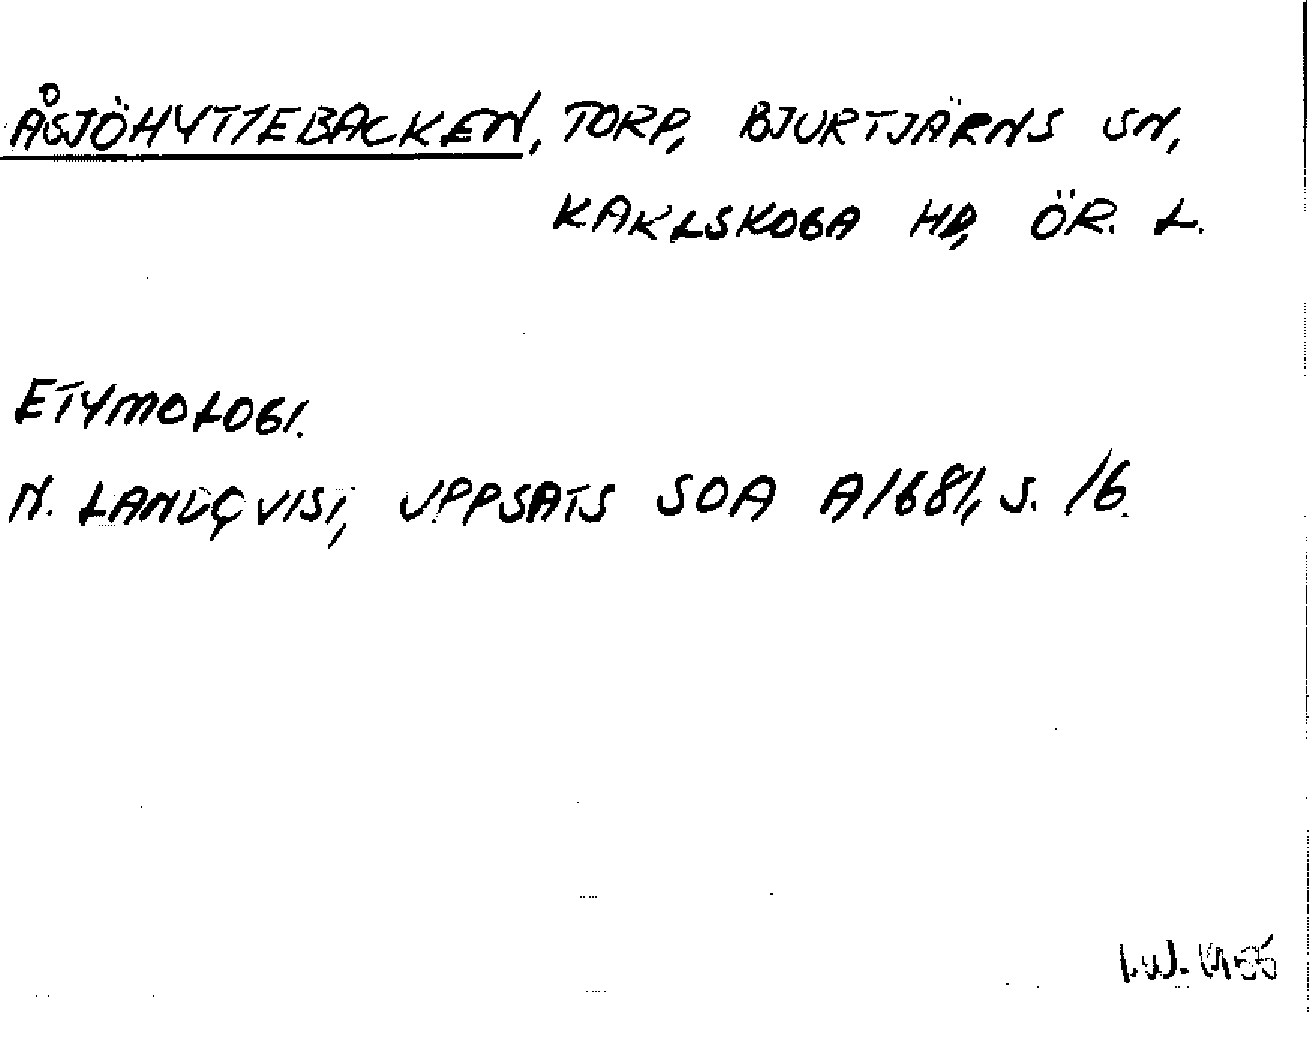 ÅSJÖHYTTEBACKEN, TORP, BJURTJÄRNS SN,
KARLSKOGA HD, ÖR. L.
ETYMOLOGI.
N. LANDQVIST, UPPSATS SOA A1681, S. 16.
I.W. 1955